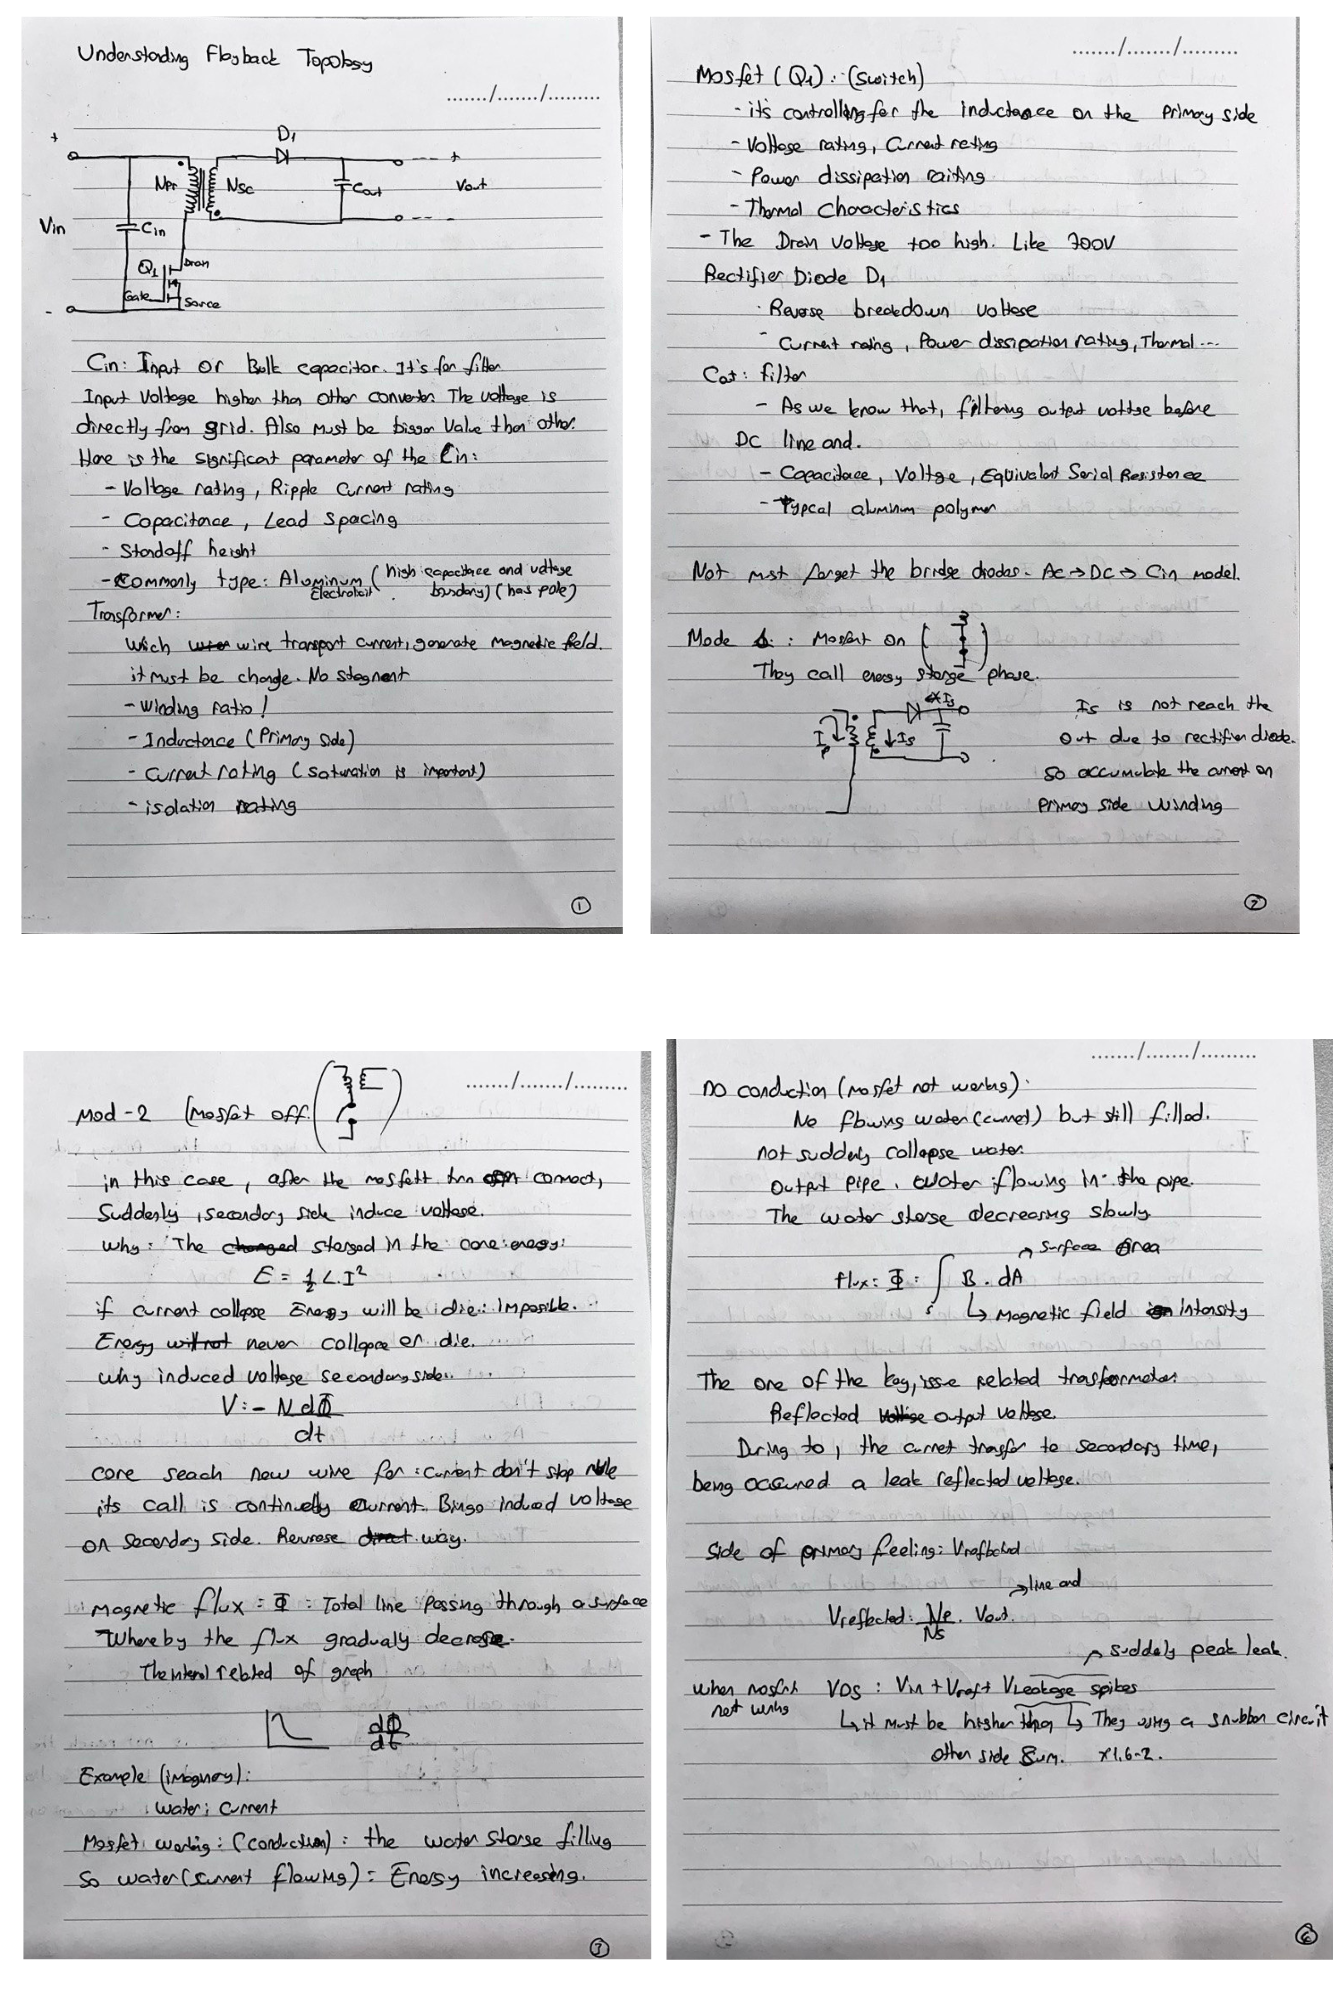 Understanding Flayback Topology
......./......./.........
+
D1
+
Npr
Nsc
Cout
Vout
Vin
Cin
Q1
Drain
Gate
Source
-
Cin: Input or Bulk capacitor. It's for filter
Input Voltage higher than other converter. The voltage is
directly from grid. Also must be bigger Value than other.
Here is the significant parameter of the Cin:
- Voltage rating, Ripple Current rating
- Capacitance, Lead Spacing
- Standoff height
- Commonly type: Aluminum Electrolcit (high capacitace and voltage boundary) (has pole)
Transformer:
Wich wire transport current, generate magnetic field.
it must be change. No stagnent
- Winding ratio!
- Inductance (Primary Side)
- Current rating (saturation is important)
- isolation rating
1
......./......./.........
Mosfet (Q1): (switch)
- its controlling for the inductance on the Primary side
- Voltage rating, Current rating
- Power dissipation raiting
- Thermal Characteristics
- The Drain Voltage too high. Like 700V
Rectifier Diode D1
- Reverse breakdown voltage
- Current rating, Power dissipation rating, Thermal...
Cout: filter
- As we know that, filtering output voltge before
DC line and.
- Capacitace, Voltge, Equivalent Serial Resistance
- Typcal aluminum polymer
Not must forget the bridge diodes. AC → DC → Cin model.
Mode 1: Mosfet on
They call energy storge phase.
Is
Ip
Is
Is is not reach the
out due to rectifier diode.
So accumulate the current on
Primary side Winding
2
......./......./.........
Mod-2 (Mosfet off.
in this case, after the mosfett turn off connect,
Suddenly, secondary side induce voltage.
Why: The changed storged in the core energy:
E = ½ L.I²
if current collapse Energy will be die: Imposible.
Energy will not never collapse or die.
why induced voltage secondary side..
V: - N dΦ
dt
core seach new wire for current don't stop
its call is continuelly current. Bingo induced voltage
on Secondary side. Reverse direct way.
magnetic flux = Φ = Total line passing through a surface
Whereby the flux gradualy decrease.
The related of graph
dΦ
dt
Example (imaginary):
Water: Current
Mosfet working: (conduction): the water storge filling
So water (current flowing) = Energy increasing.
3
......./......./.........
No conduction (mosfet not working):
No flowing water (current) but still filled.
not suddenly collapse water.
Output Pipe. Water flowing in the pipe.
The water storge decreasing slowly
surface Area
flux: Φ: ∫ B. dA
↳ Magnetic field intensity
The one of the key, issue related trasformator.
Reflected Voltage output voltage.
During to, the curnet trasfer to secondary time,
being occured a leak reflected voltage.
Side of primary feeling: Vreflected
line and
Vreflected: Np . Vout.
Ns
suddely peak leak.
When mosfet VDS: Vin + Vref + VLeakage spikes
not wrking
↳ it must be higher than ↳ They using a snubber circuit
other side Sum. x1.6-2.